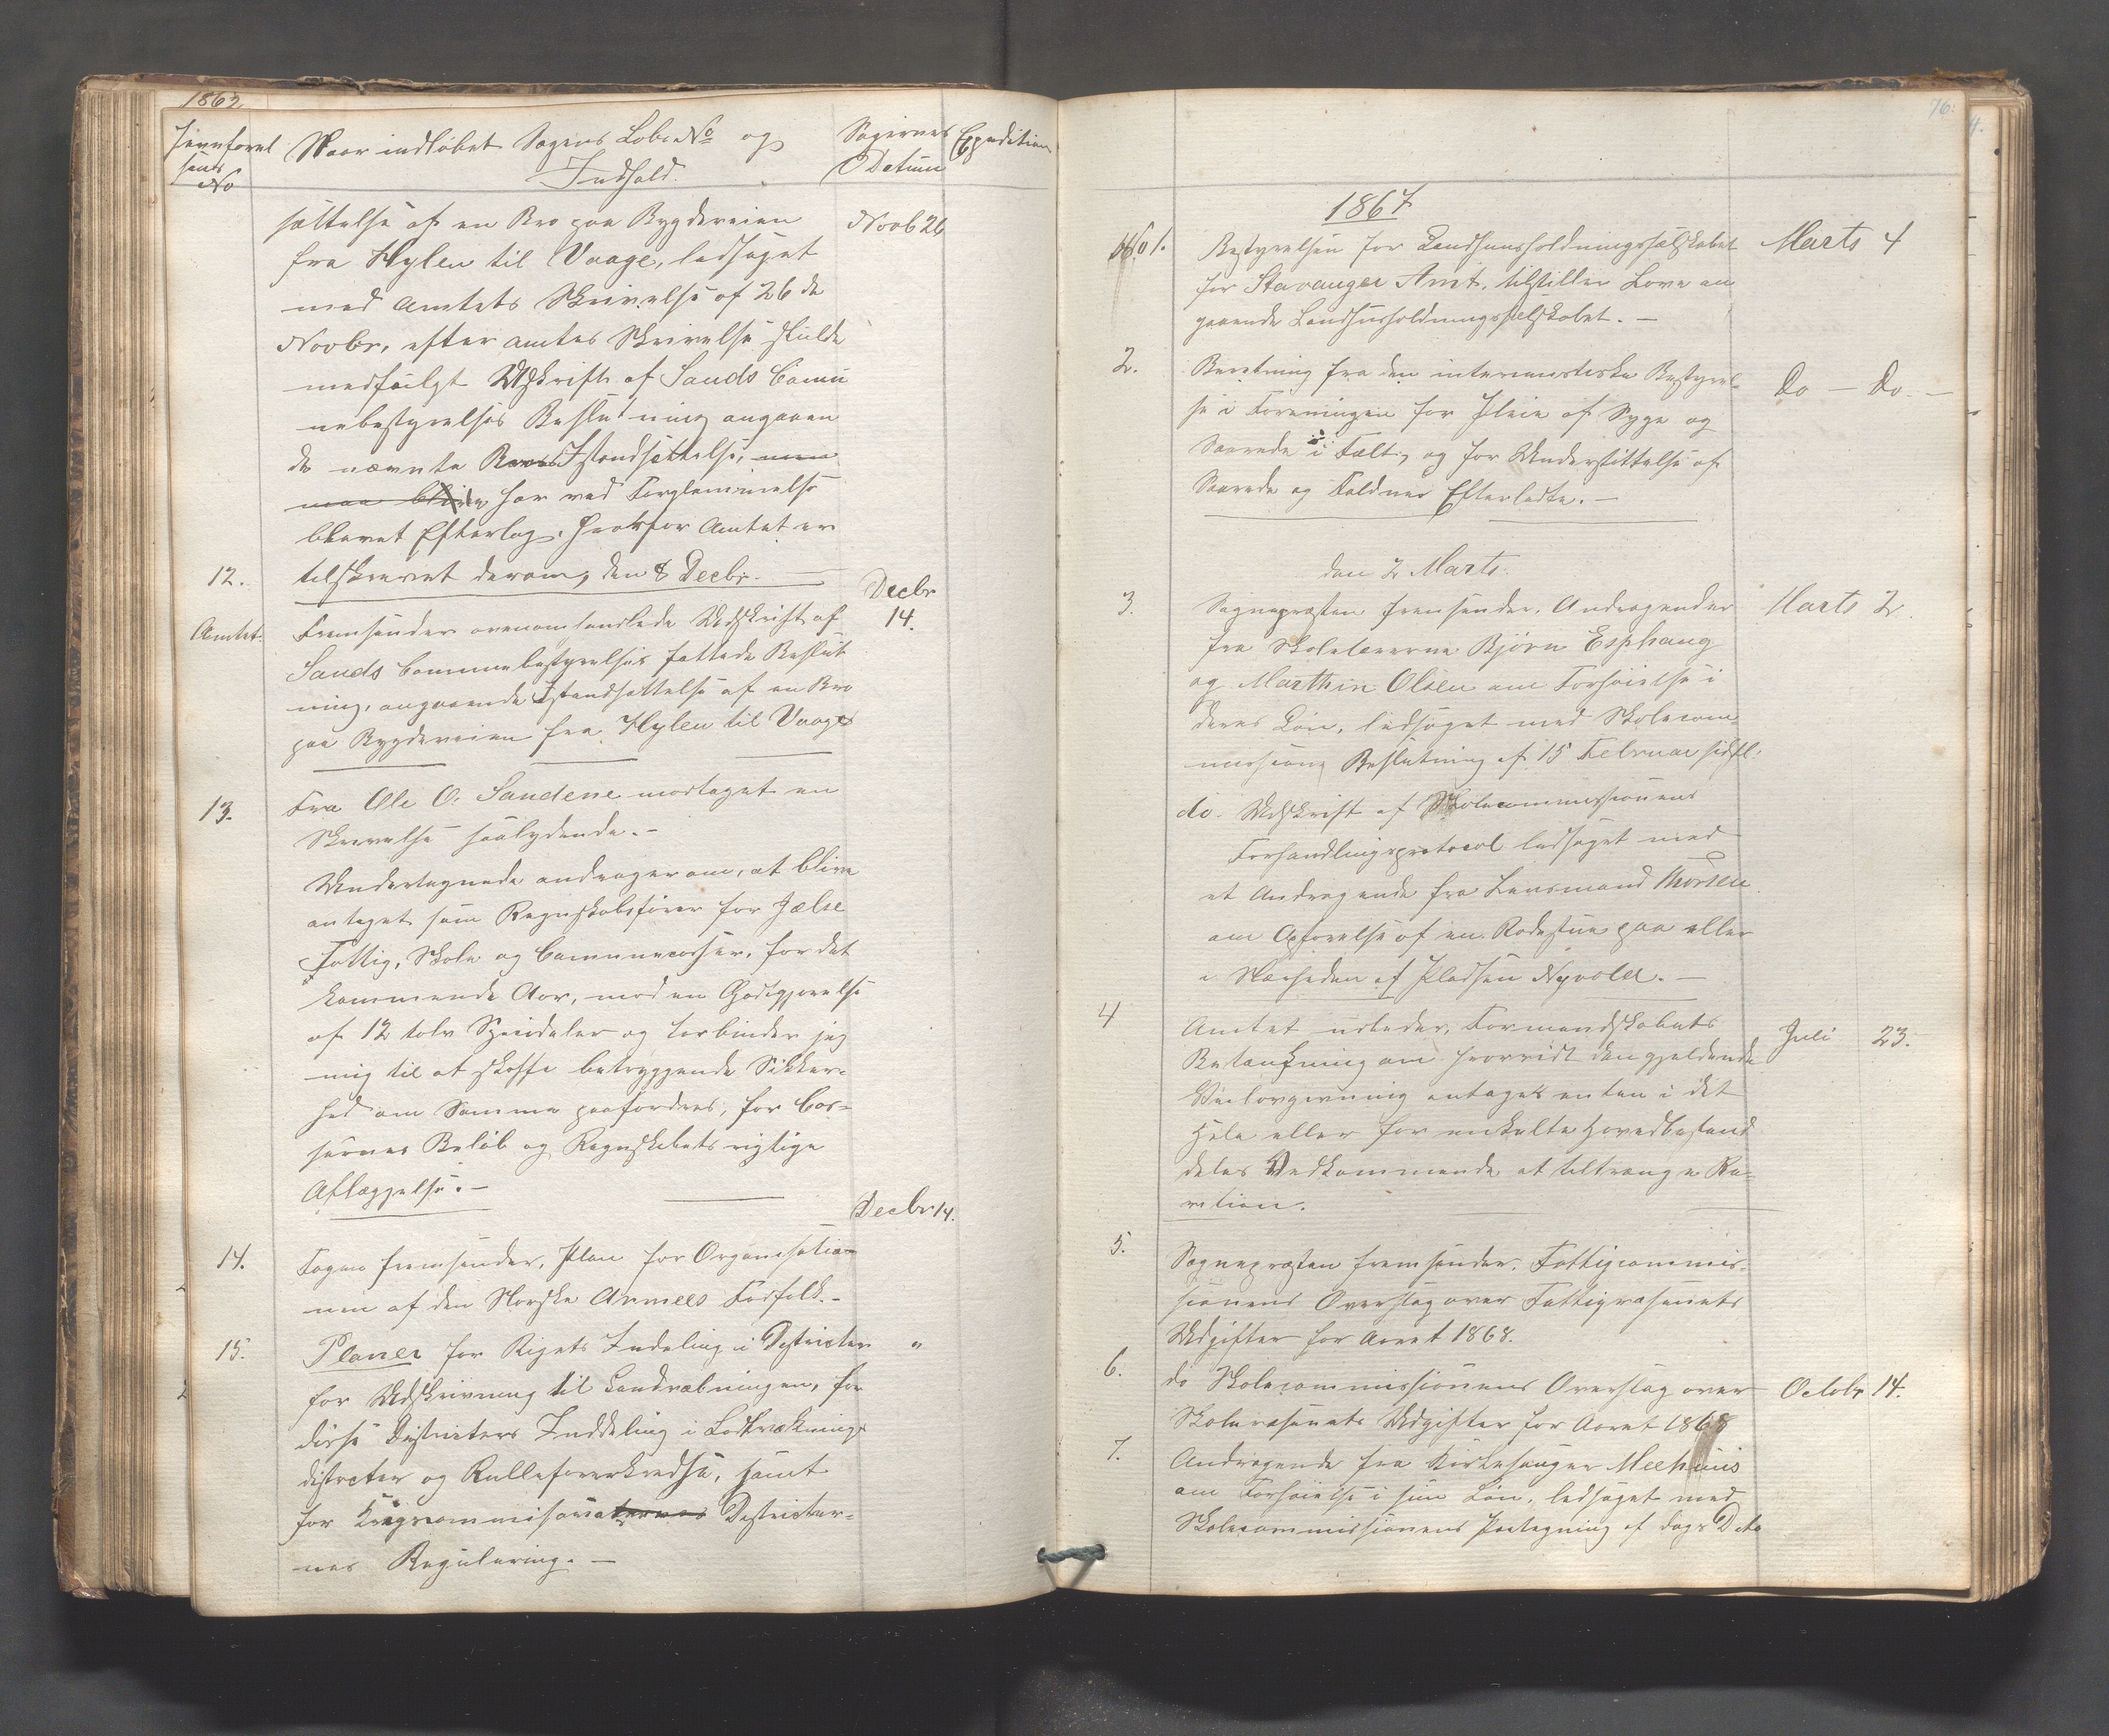 1862
Jevnførel
sens
No
Naar indløbet Sagens Løbe No og
Indhold.
Sagernes
Datum
Expedition
sættelse af en Bro paa Bygdeveien
Novb 26
fra Hylen til Vaage, ledsaget
med Amtets Skrivelse af 26de
Novbr, efter Amtes Skrivelse skulde
medfulgt Udskrift af Sands Comu
nebestyrelses Beslutning angaaen
de nævnte Broes Istandsættelse, men
maa blive har ved Forglemmelse
blevet Efterlagt, hvorfor Amtet er
tilskrevet derom, den 8 Decbr. —
12.
Decbr
14.
Amtet.
Fremsender ovenomhandlede Udskrift af
Sands Communebestyrelses fattede Beslut
ning, angaaende Istandsættelse af en Bro
paa Bygdeveien fra Hylen til Vaage
13.
Fra Ole O. Sandene modtaget en
Skrivelse saalydende. —
Undertegnede andrager om, at blive
antaget som Regnskabsfører for Jælse
Fattig, Skole og Communecasser, for det
kommende Aar, mod en Godtgjørelse
af 12 tolv Speciedaler og forbinder jeg
mig til at skaffe betryggende Sikker-
hed om Samme paafordres, for Cas-
sernes Beløb og Regnskabets rigtige
Aflæggelse. —
Decbr 14.
14.
Fogden fremsender, Plan for Organisatio
nen af den Norske Armees Fodfolk. —
15.
Planer for Rigets Inddeling i Districter
"
for Udskrivning til Landværbningen, for
disse Districters Inddeling i Lodtræknings
districter og Rulleførerkredse, samt
for Krigscommisariaternes Districter-
nes Regulering. —
76.
1867
No 1.
Bestyrelsen for Landhuusholdningsselskabet
Marts 4
for Stavanger Amt, tilstiller Love an
gaaende Landhusholdningsselskabet. —
2.
Beretning fra den interimistiske Bestyrel-
Do — Do. —
se i Foreningen for Pleie af Syge og
Saarede i Felt, og for Understøttelse af
Saarede og Faldnes Efterladte. —
den 2 Marts.
3.
Sognepresten fremsender, Andragender
Marts 2
fra Skolelærerne Bjørn Esphaug
og Marthin Olsen om Forhøielse i
deres Løn, ledsaget med Skolecom-
missions Beslutning af 15 Februar sidstl.
do. Udskrift af Skolecommissionens
Forhandlingsprotocol ledsaget med
et Andragende fra Lensmand Thorsen
om Opførelse af en Rodestue paa eller
i Nærheden af Pladsen Nyvold. —
4
Amtet udbeder, Formandskabets
Juli 23.
Betænkning om hvorvidt den gjeldende
Veilovgivning antages enten i det
Hele eller for enkelte Hovedbestand
deles Vedkommende at tiltrænge Re-
vition.
5.
Sognepresten fremsender, Fattigcommis-
sionens Overslag over Fattigvæsenets
Udgifter for Aaret 1868.
6.
do Skolecommissionens Overslag over
Octobr 14.
Skolevæsenets Udgifter for Aaret 1868
7.
Andragende fra Kirkesanger
om Forhøielse i sin Løn, ledsaget med
Skolecommissionens Paategning af dags Dato